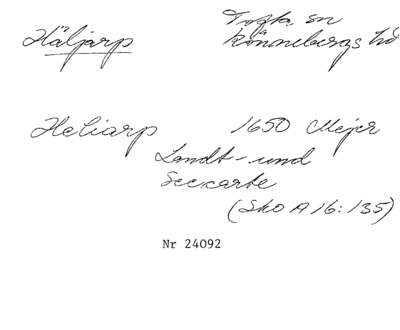 Häljarp
Tofta sn
Rönnebergs hd
Heliarp 1650 Mejer
Landt- und
Seekarte
(Sko A 16:135)
Nr 24092